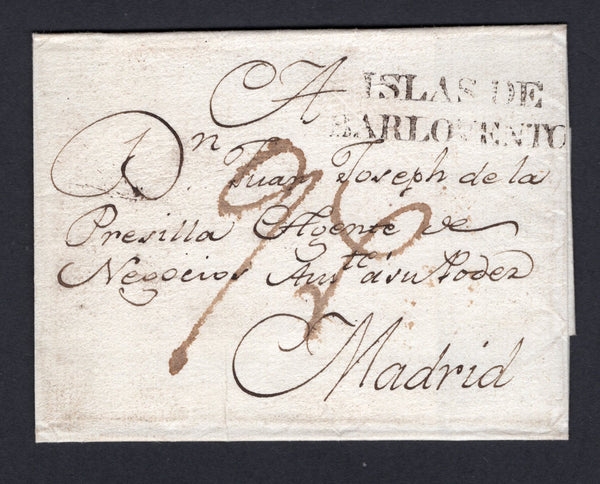 A
ISLAS DE
BARLOVENTO
Dn Juan Joseph de la
Presilla Agente de
Negocios Austte á su Poder
Madrid